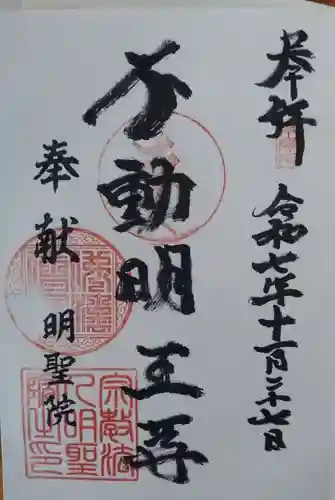 奉拝
令和七年十二月二十七日
不動明王尊
奉献
明聖院
宗教法人明聖院之印